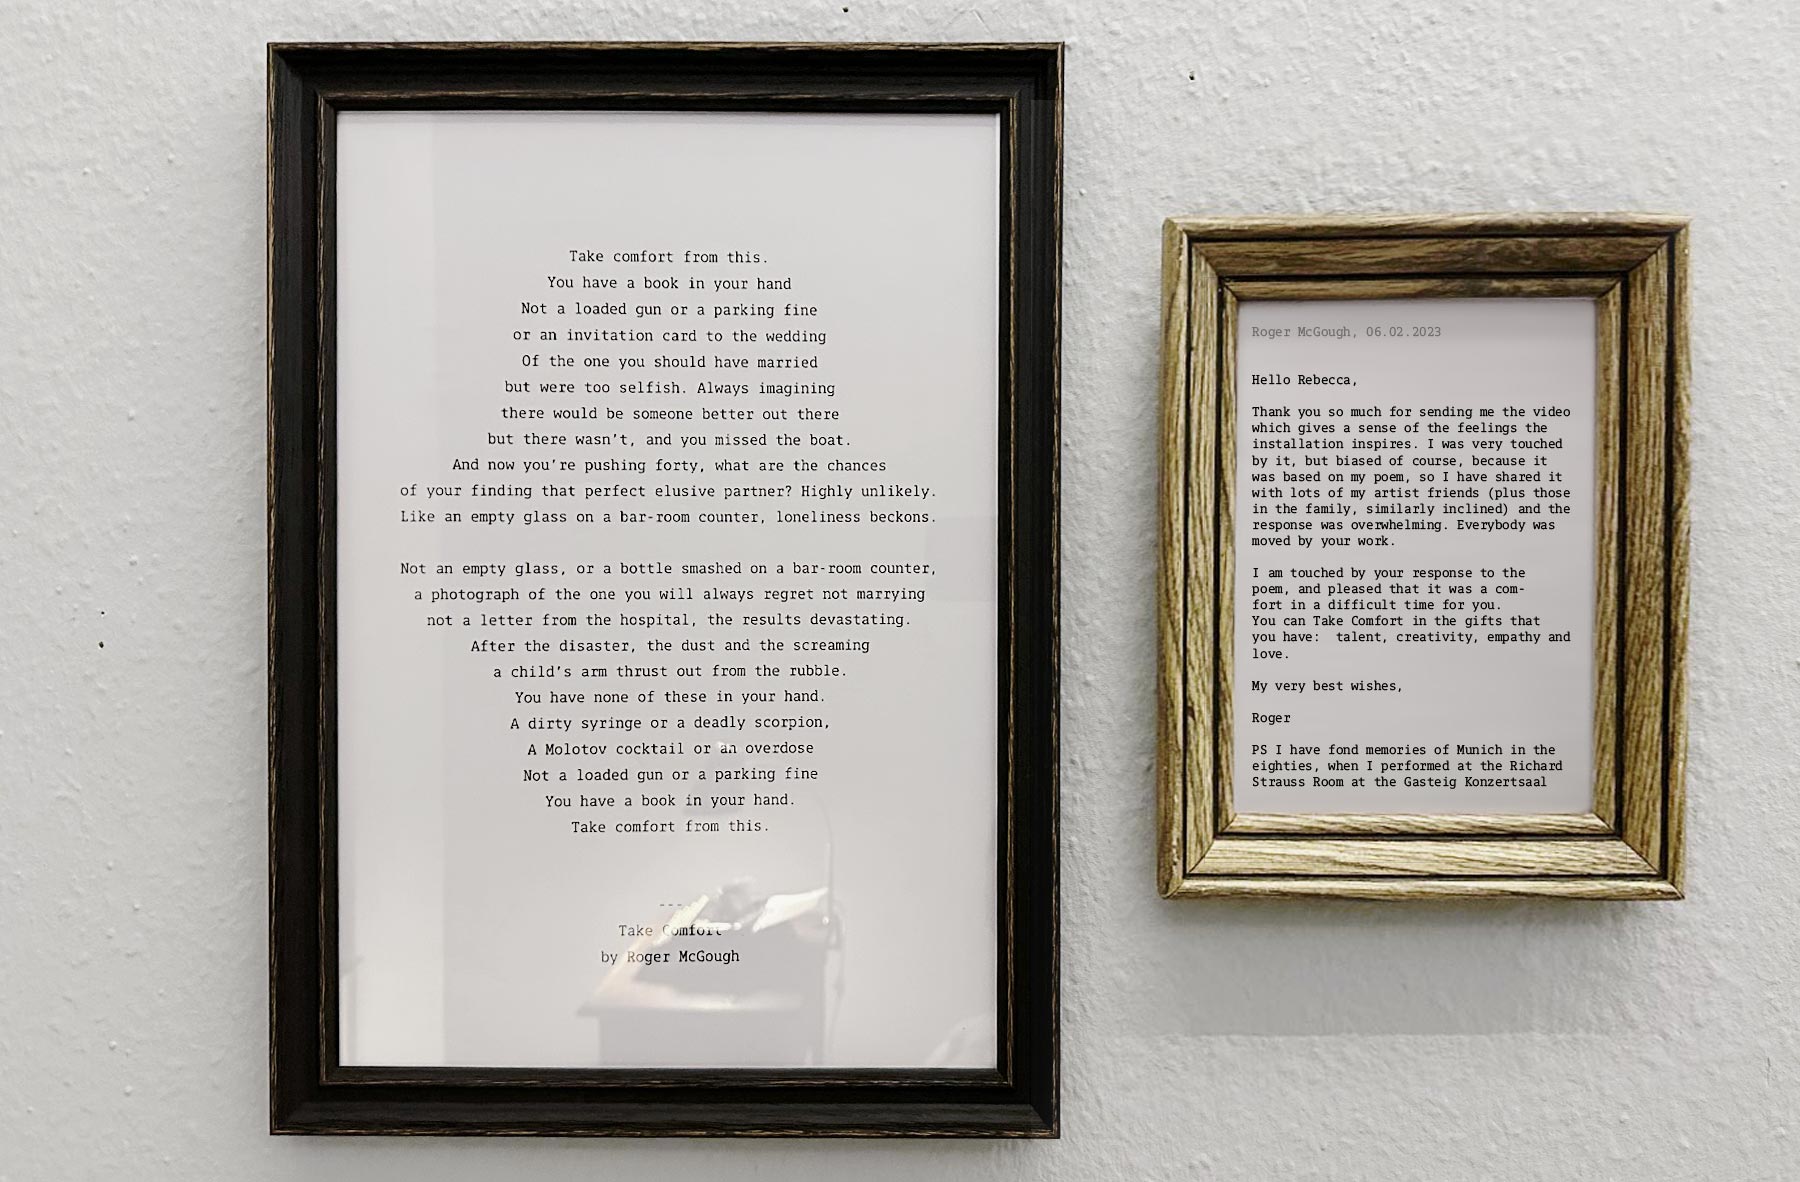 Take comfort from this.
You have a book in your hand
Not a loaded gun or a parking fine
or an invitation card to the wedding
Of the one you should have married
but were too selfish. Always imagining
there would be someone better out there
but there wasn't, and you missed the boat.
And now you're pushing forty, what are the chances
of your finding that perfect elusive partner? Highly unlikely.
Like an empty glass on a bar-room counter, loneliness beckons.
Not an empty glass, or a bottle smashed on a bar-room counter,
a photograph of the one you will always regret not marrying
not a letter from the hospital, the results devastating.
After the disaster, the dust and the screaming
a child's arm thrust out from the rubble.
You have none of these in your hand.
A dirty syringe or a deadly scorpion,
A Molotov cocktail or an overdose
Not a loaded gun or a parking fine
You have a book in your hand.
Take comfort from this.
---
Take Comfort
by Roger McGough
Roger McGough, 06.02.2023
Hello Rebecca,
Thank you so much for sending me the video
which gives a sense of the feelings the
installation inspires. I was very touched
by it, but biased of course, because it
was based on my poem, so I have shared it
with lots of my artist friends (plus those
in the family, similarly inclined) and the
response was overwhelming. Everybody was
moved by your work.
I am touched by your response to the
poem, and pleased that it was a com-
fort in a difficult time for you.
You can Take Comfort in the gifts that
you have:  talent, creativity, empathy and
love.
My very best wishes,
Roger
PS I have fond memories of Munich in the
eighties, when I performed at the Richard
Strauss Room at the Gasteig Konzertsaal